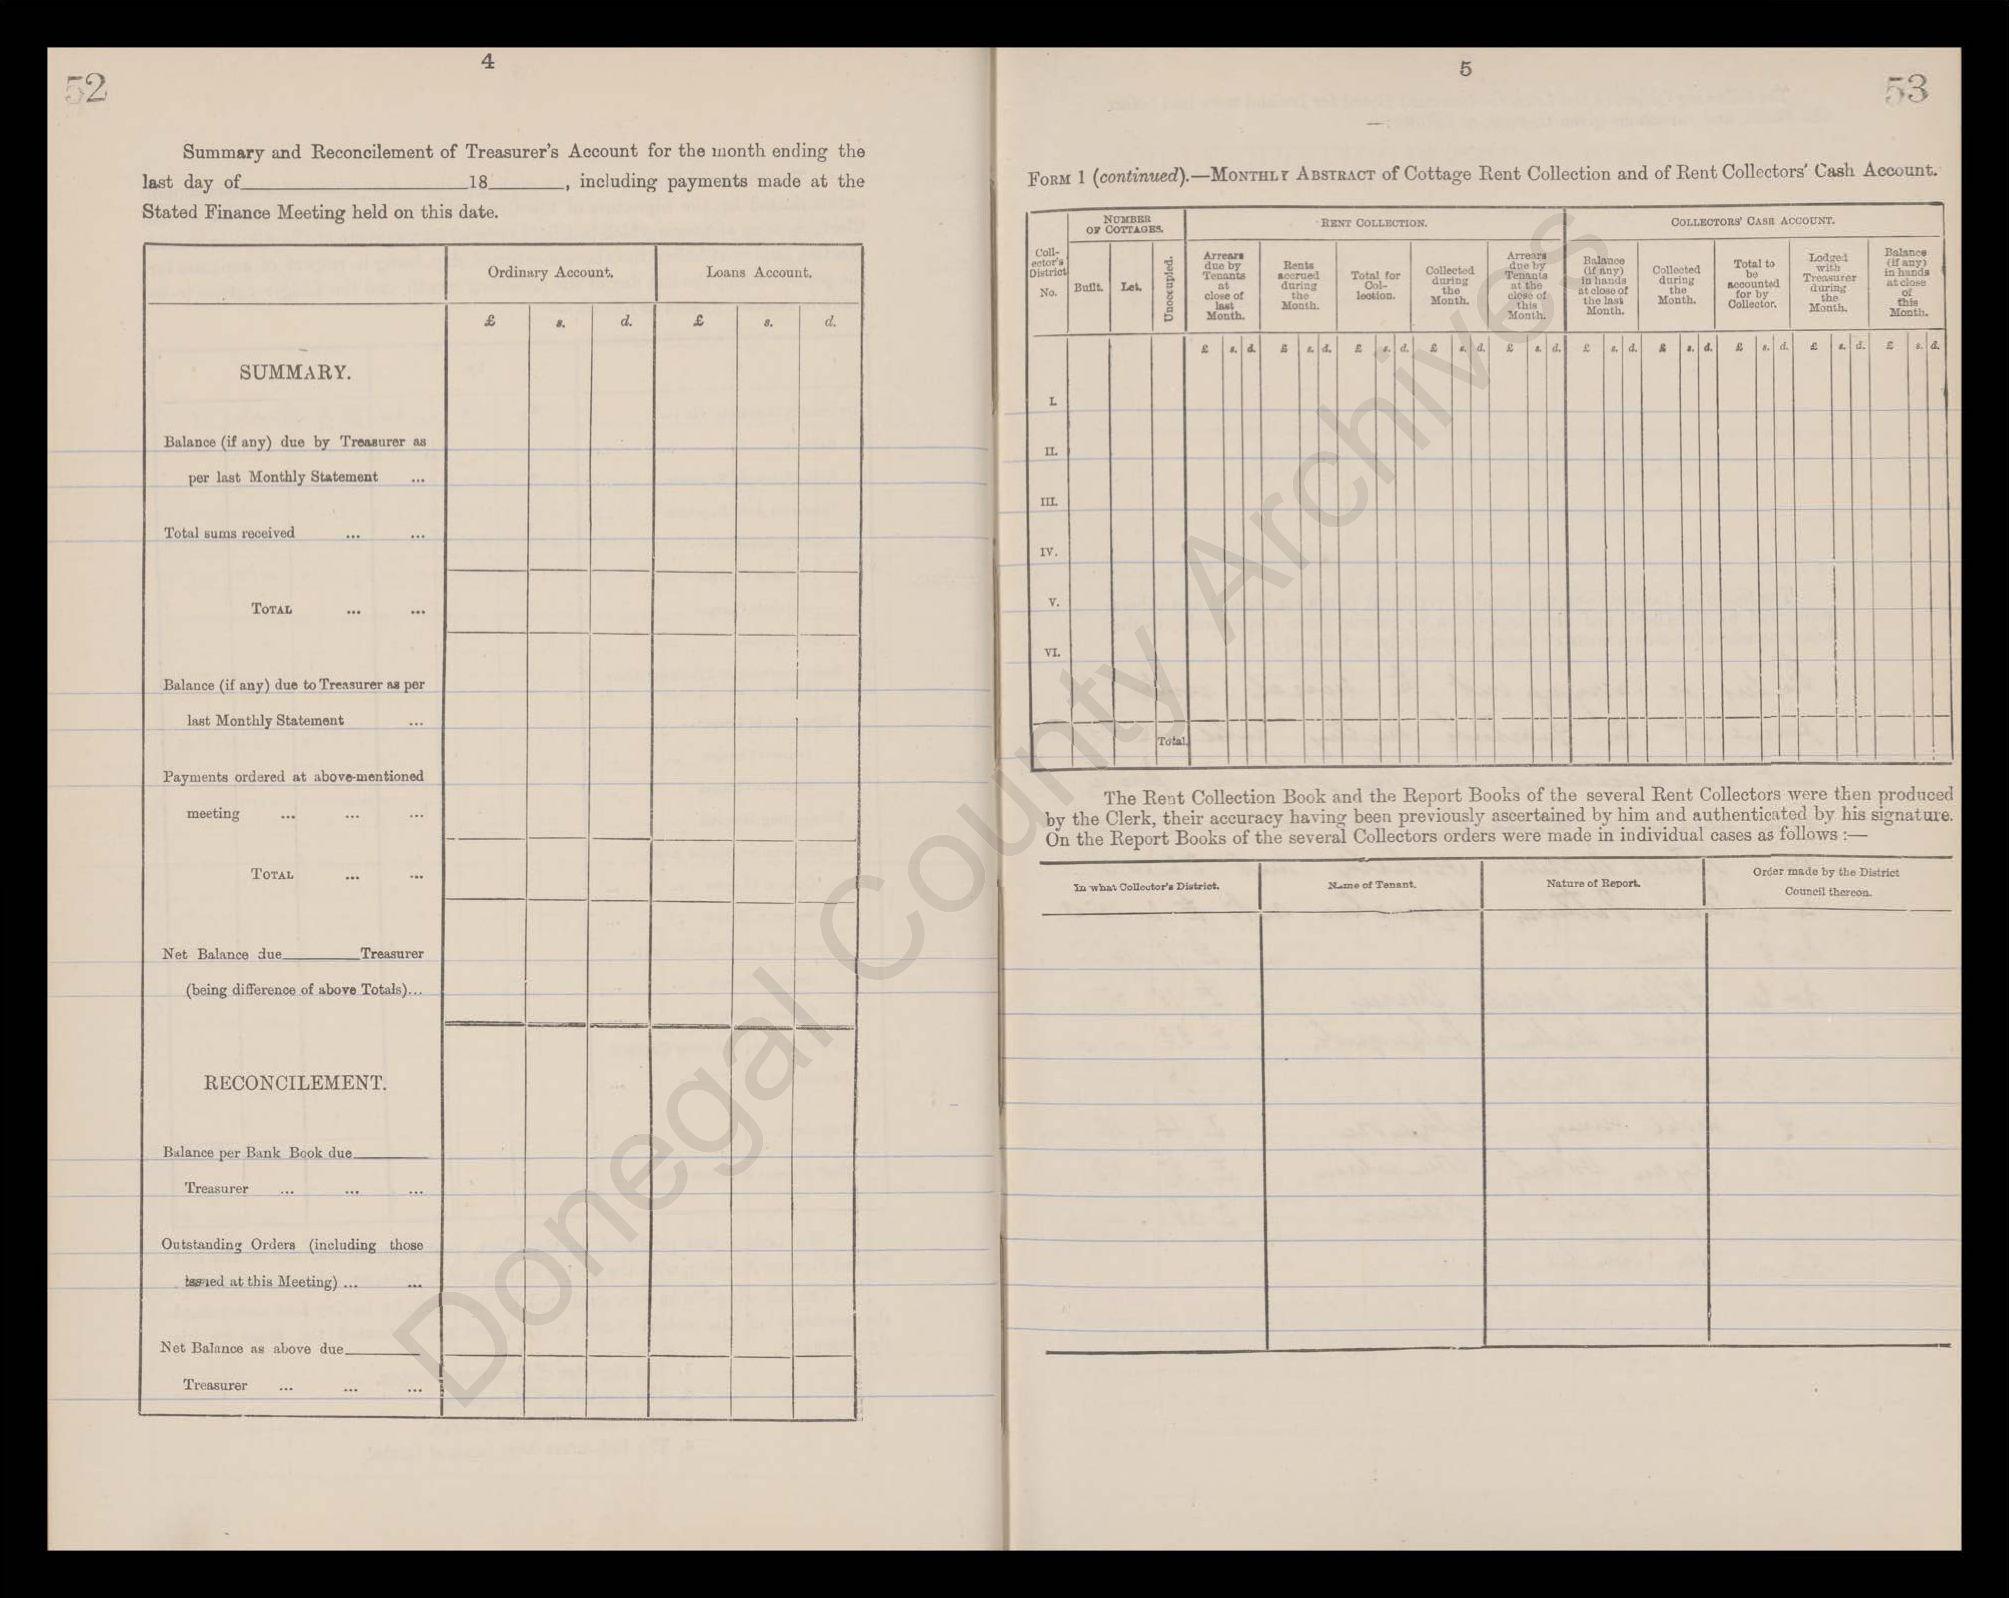 52
4
Summary and Reconcilement of Treasurer's Account for the month ending the
last day of 18 , including payments made at the
Stated Finance Meeting held on this date.
Ordinary Account.
Loans Account.
£ s. d. £ s. d.
SUMMARY.
Balance (if any) due by Treasurer as
per last Monthly Statement ...
Total sums received ... ...
TOTAL ... ...
Balance (if any) due to Treasurer as per
last Monthly Statement ...
Payments ordered at above-mentioned
meeting ... ... ...
TOTAL ... ...
Net Balance due Treasurer
(being difference of above Totals)...
RECONCILEMENT.
Balance per Bank Book due
Treasurer ... ... ...
Outstanding Orders (including those
issued at this Meeting) ... ...
Net Balance as above due
Treasurer ... ... ...
5
53
FORM 1 (continued).—MONTHLY ABSTRACT of Cottage Rent Collection and of Rent Collectors' Cash Account.
Coll-
ector's
District
No.
NUMBER
OF COTTAGES.
Built.
Let.
Unoccupied.
RENT COLLECTION.
Arrears
due by
Tenants
at
close of
last
Month.
Rents
accrued
during
the
Month.
Total for
Col-
lection.
Collected
during
the
Month.
Arrears
due by
Tenants
at the
close of
this
Month.
COLLECTORS' CASH ACCOUNT.
Balance
(if any)
in hands
at close of
the last
Month.
Collected
during
the
Month.
Total to
be
accounted
for by
Collector.
Lodged
with
Treasurer
during
the
Month.
Balance
(if any)
in hands
at close
of
this
Month.
£ s. d. £ s. d. £ s. d. £ s. d. £ s. d. £ s. d. £ s. d. £ s. d. £ s. d. £ s. d.
I.
II.
III.
IV.
V.
VI.
Total.
The Rent Collection Book and the Report Books of the several Rent Collectors were then produced
by the Clerk, their accuracy having been previously ascertained by him and authenticated by his signature.
On the Report Books of the several Collectors orders were made in individual cases as follows :—
In what Collector's District.
Name of Tenant.
Nature of Report.
Order made by the District
Council thereon.
Donegal County Archives